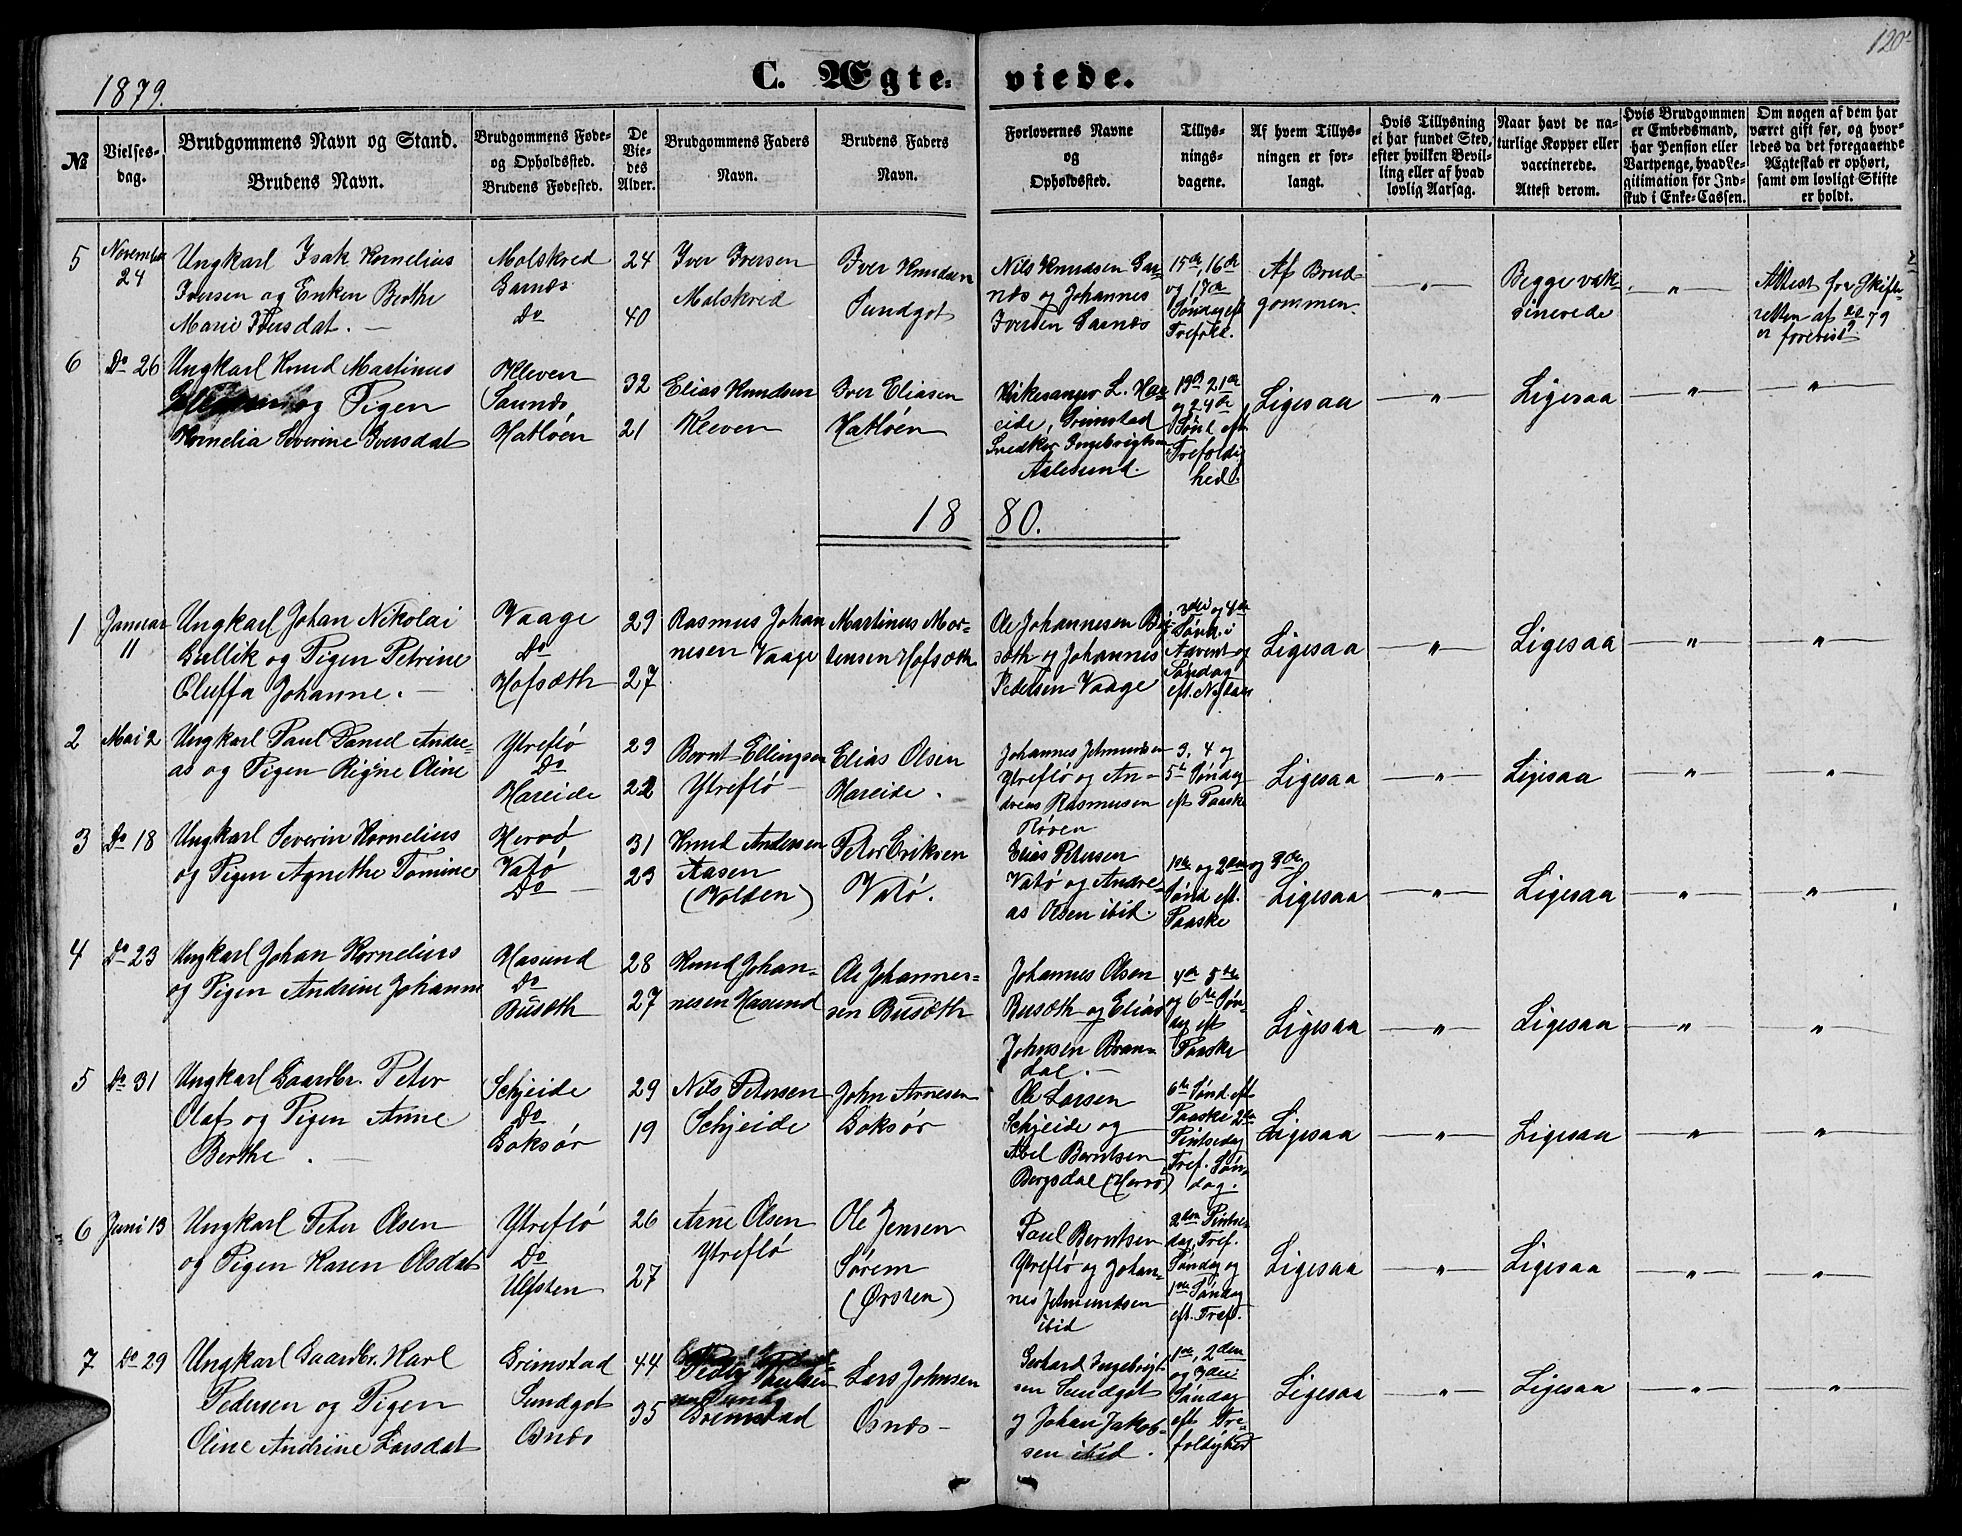 120
1879.
C. Ægteviede.
№
Vielsesdag.
Brudgommens Navn og Stand.
Brudens Navn.
Brudgommens Føde- og Opholdssted.
Brudens Fødested.
De Viedes Alder.
Brudgommens Faders Navn.
Brudens Faders Navn.
Forlovernes Navne og Opholdssted.
Tillysningsdagene.
Af hvem Tillysningen er forlangt.
Hvis Tillysning ei har fundet Sted, efter hvilken Bevilling eller af hvad lovlig Aarsag.
Naar havt de naturlige Kopper eller vaccinerede. Attest derom.
Hvis Brudgommen er Embedsmand, har Pension eller Vartpenge, hvad Legitimation for Indskud i Enke-Cassen.
Om nogen af dem har været gift før, og hvorledes da det foregaaende Ægteskab er ophørt, samt om lovligt Skifte er holdt.
5
November 24
Ungkarl Isak Kornelius
Iversen og Enken Berthe
Marie Iversdat. —
Molskred
Garnæs
Do
24
40
Iver Iversen
Molskred
Iver Knudsen
Sundgot
Nils Knudsen Garnæs og Johannes
Iversen Garnæs
15de, 16de
og 17de
Søndag eft
Trefold.
Af Brudgommen.
— " —
Begge vaksinerede
— " —
Attest fra Skifteretten af 20/9 79
er forevist
6
Do 26
Ungkarl Knud Martinus
og Pigen
Kornelia Severine Iversdat
Kleven
Hatløen
32
21
Elias Knudsen
Kleven
Iver Eliasen
Hatløen
Kirkesanger L. Hareide, Grimstad
Snedker Ingebrigtsen
Aalesund.
19de 21de
og 24de
Sønd. eft
Trefoldighed.
Ligesaa
— " —
Ligesaa
— " —
— " —
1880.
1
Januar 11
Ungkarl Johan Nikolai
Gullik og Pigen Petrine
Oluffa Johanne. —
Vaage
Do
Hofsæth
29
27
Rasmus Johannesen Vaage
Martinus Mortensen Hofsæth
Ole Johannesen
og Johannes
Pedersen Vaage
3die og 4de
Sønd. i
Advent og
Søndag
eft. Nytaar
Ligesaa
— " —
Ligesaa
— " —
— " —
2
Mai 2
Ungkarl Paul Daniel Andreas og Pigen Rigne Oline
Ytreflø
Do
Hareide
29
22
Bernt Ellingsen
Ytreflø —
Elias Olsen
Hareide.
Johannes Jetmundsen
Ytreflø og Andreas Rasmusen
Røren
3, 4 og
5te Søndag
eft Paaske
Ligesaa
— " —
Ligesaa
— " —
— " —
3
Do 18
Ungkarl Severin Kornelius
og Pigen Agnethe Tomine
Herrø
Vatø
Do —
31
23
Knud Andersen
Aasen
(Volden)
Peter Eriksen
Vatø.
Elias Petersen
Vatø og Andreas Olsen ibid.
1ste og 2den og 3die
Sønd eft.
Paaske
Ligesaa
— " —
Ligesaa
— " —
— " —
4
Do 23
Ungkarl Johan Kornelius
og Pigen Andrine Johanne
Hasund
Do
Busæth
28
27
Knud Johannesen Hasund
Ole Johannessen Busæth
Johannes Olsen
Busæth og Elias
Johnsen Brandal. —
4de 5te
og 6te Søndag eft
Paaske
Ligesaa
— " —
Ligesaa
— " —
— " —
5
Do 31
Ungkarl Gaardbr. Peter
Olaf og Pigen Anne
Berthe . —
Schjeide
Do
Goksør
29
19
Nils Petersen
Schjeide
John Arnesen
Goksør
Ole Larsen
Schjeide og
Abel Berntsen
Bergsdal (Herrø)
6te Sønd eft
Paaske 2den
Pintsedag
Tref. Søndag.
Ligesaa
— " —
Ligesaa
— " —
— " —
6
Juni 13
Ungkarl Peter Olsen
og Pigen Karen Olsdat
Ytreflø
Do
Ulfsten
26
27
Arne Olsen
Ytreflø
Ole Jensen
Sørem
(Ørsten)
Paul Berntsen
Ytreflø og Johannes Jetmundsen
ibid
2den Pintsedag, Tref.
Søndag og
1ste Søndag
eft. Tref.
Ligesaa
— " —
Ligesaa
— " —
— " —
7
Do 29
Ungkarl Gaardbr. Karl
Pedersen og Pigen
Oline Andrine Larsdat
Grimstad
Sundgot
Osnæs
44
35
Peder Paulsen
Grimstad
Lars Johnsen
Osnæs —
Gerhard Ingebrigtsen Sundgot
og Johan Jakobsen ibid.
1ste, 2den
og 3die
Søndag
eft Trefoldighed
Ligesaa
— " —
Ligesaa
— " —
— " —